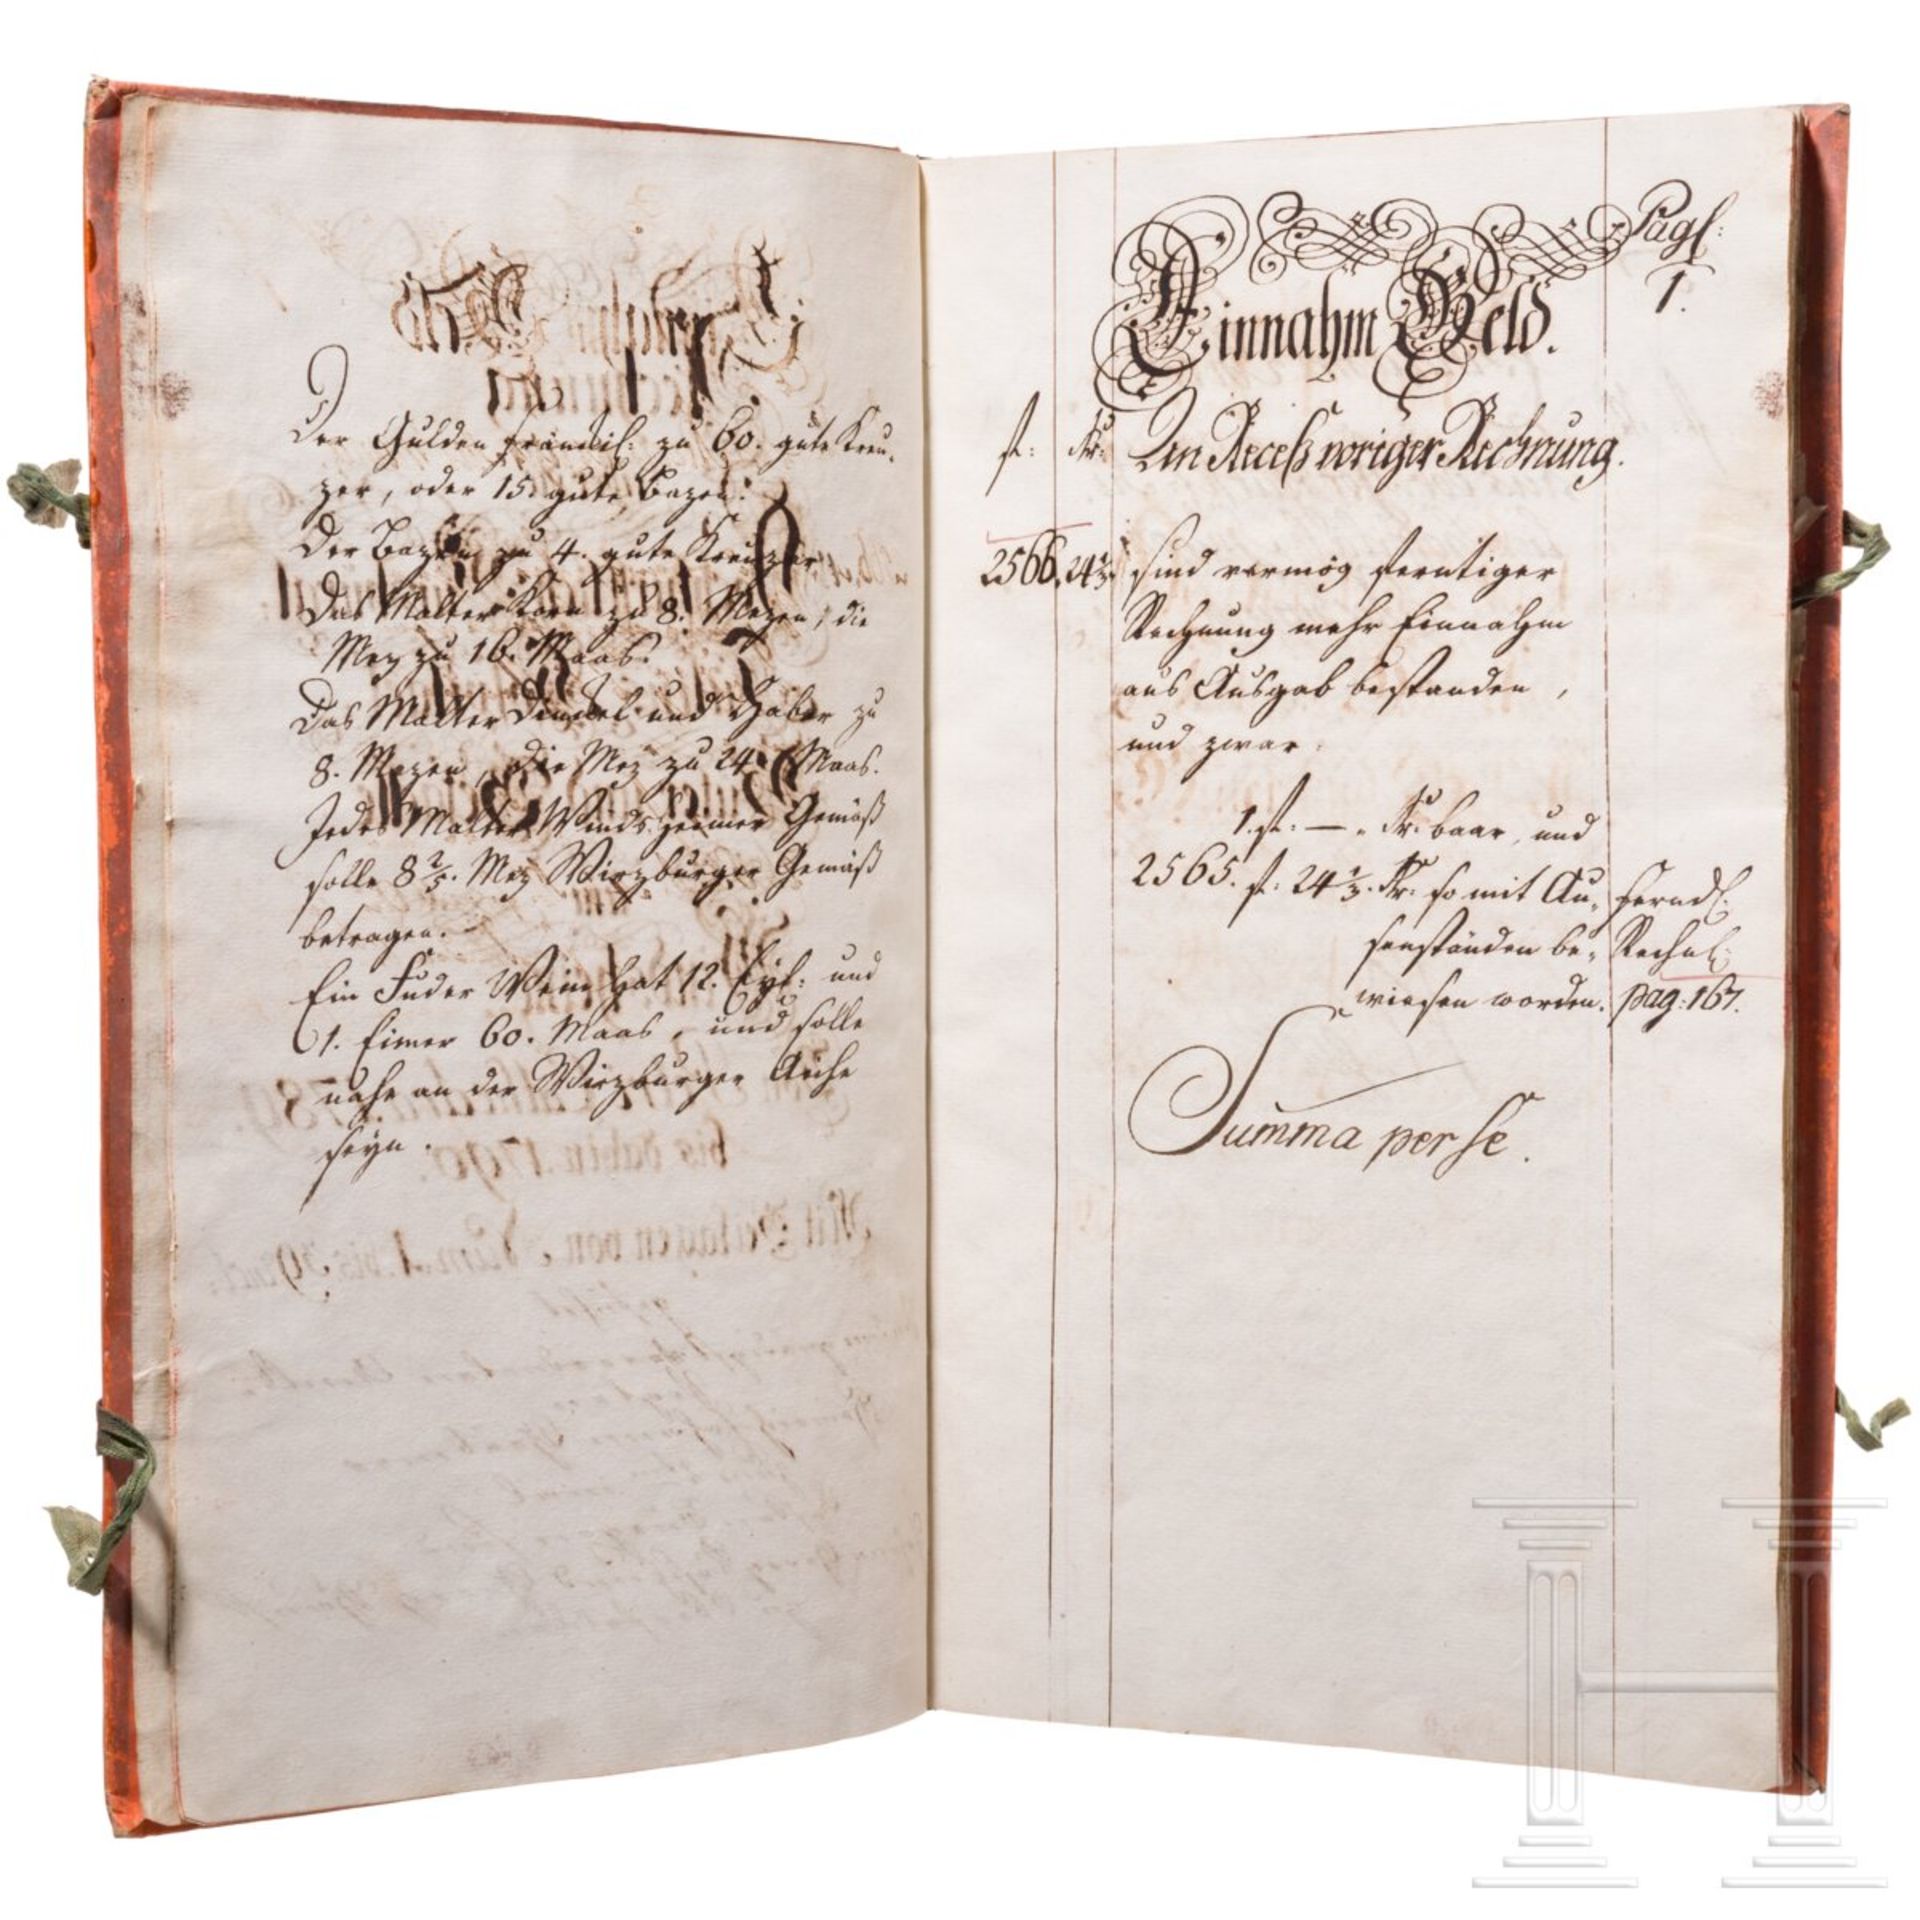 Der Gulden fränkis: zu 60. gute Kreu„
zer, oder 15. gute Bazen.
Der Bazen zu 4. gute Kreuzer
Das Malter Korn zu 8. Mezen, die
Mez zu 16. Maas.
Das Malter Dinckel und Haber zu
8. Mezen, die Mez zu 24. Maas.
Jedes Malter Windsheimer Gemäß
solle 8 2/5. Mez Wirzburger Gemäß
betragen.
Ein Fuder Wein hat 12. Eyl: und
1. Eimer 60. Maas, und solle
nahe an der Wirzburger Aiche
seyn.
bis dahin 1790.
Mit Beilagen von Num. 1. bis
Pagl:
1.
Einnahm Geld.
fl: Kr: An Receß voriger Rechnung.
2566. 24 1/3. sind vermög ferntiger
Rechnung mehr Einnahm
aus Ausgab bestanden,
und zwar.
1. fl: — „ Kr: baar, und
2565. fl: 24 1/3. Kr: so mit Au„ Ferndl:
senständen be„ Rechnl:
wiesen worden. pag: 167.
Summa per se.